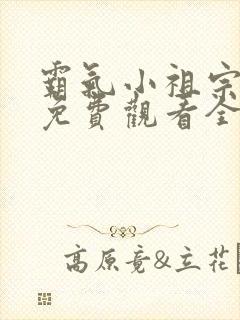 霸氣小祖宗
免費觀看全
高原竟&立花